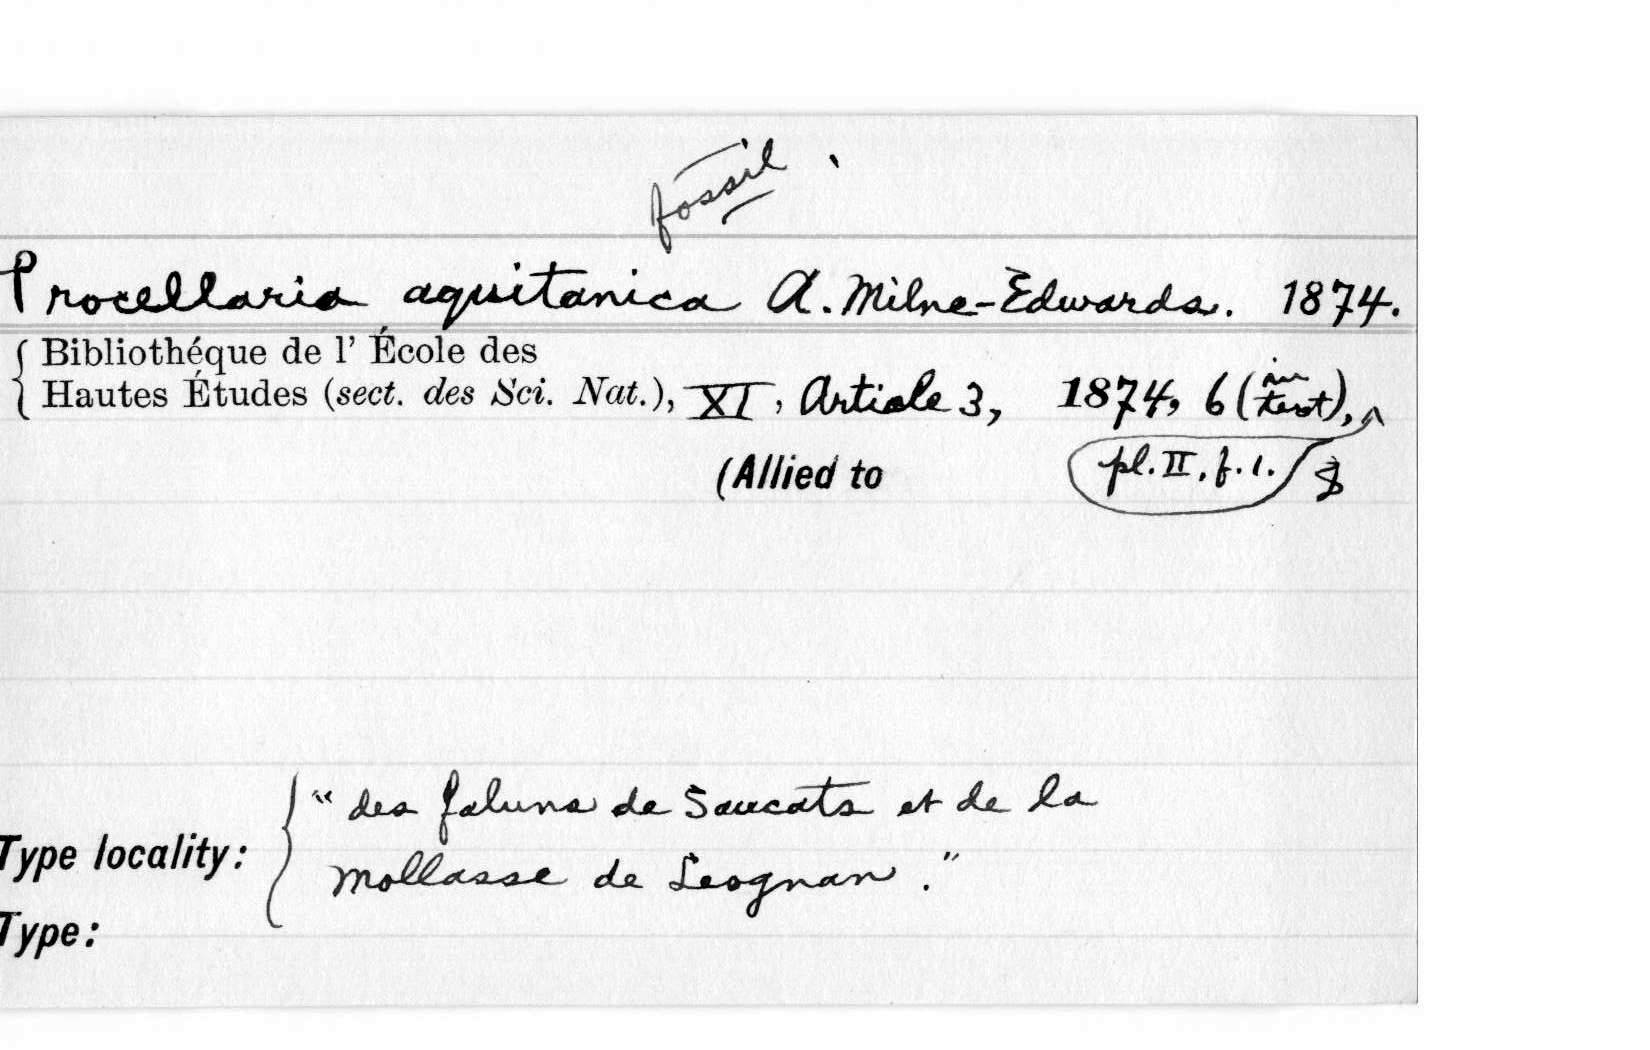 fossil.
Procellaria aquitanica A. Milne-Edwards. 1874.
Bibliothéque de l' École des
Hautes Études (sect. des Sci. Nat.), XI, Article 3, 1874, 6 (in text),
(Allied to pl. II, f. 1.
"des faluns de Saucats et de la
Type locality:
mollasse de Leognan."
Type: